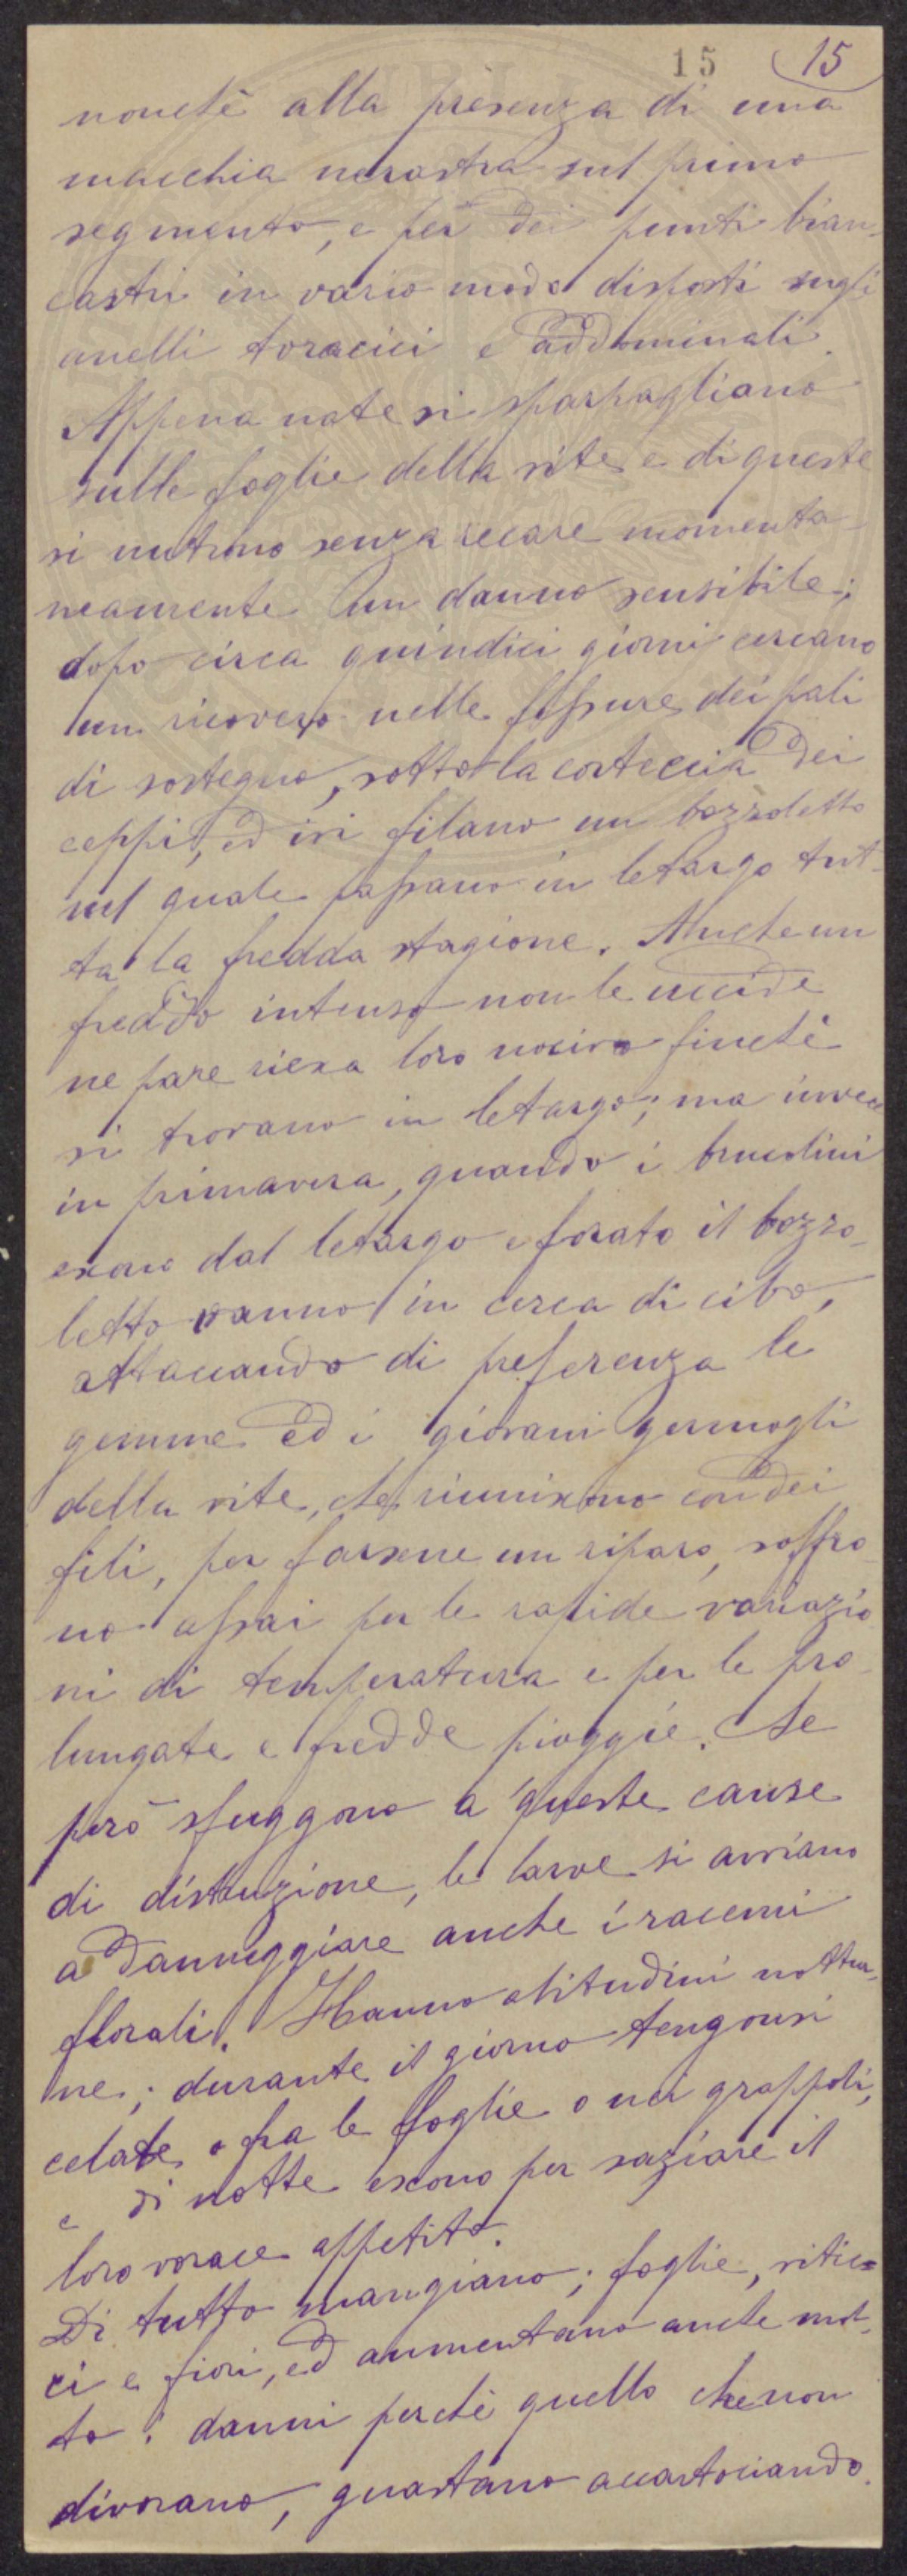 15 15
nonchè alla presenza di una
macchia nerastra sul primo
segmento, e per dei punti bian-
castri in vario modo disposti sugli
anelli toracici e addominali.
Appena nate si sparpagliano
sulle foglie della vite e di queste
si nutrono senza recare momenta-
neamente un danno sensibile;
dopo circa quindici giorni cercano
un ricovero nelle fessure dei pali
di sostegno, sotto la corteccia dei
ceppi, ed ivi filano un bozzoletto
nel quale passano in letargo tut-
ta la fredda stagione. Anche un
freddo intenso non le uccide
ne pare riesca loro nocivo finchè
si trovano in letargo; ma invece
in primavera, quando i bruchini
escono dal letargo e forato il bozzo-
letto vanno in cerca di cibo,
attaccando di preferenza le
gemme ed i giovani germogli
della vite, che riuniscono con dei
fili, per farsene un riparo, soffro-
no assai per le rapide variazio-
ni di temperatura e per le pro-
lungate e fredde pioggie. Se
però sfuggono a queste cause
di distruzione, le larve si avviano
a danneggiare anche i racemi
florali. Hanno abitudini nottur-
ne; durante il giorno tengonsi
celate o fra le foglie o nei grappoli,
e di notte escono per saziare il
loro vorace appetito.
Di tutto mangiano; foglie, vitic-
ci e fiori, ed aumentano anche mol-
to i danni perchè quello che non
divorano, guastano accartociando.